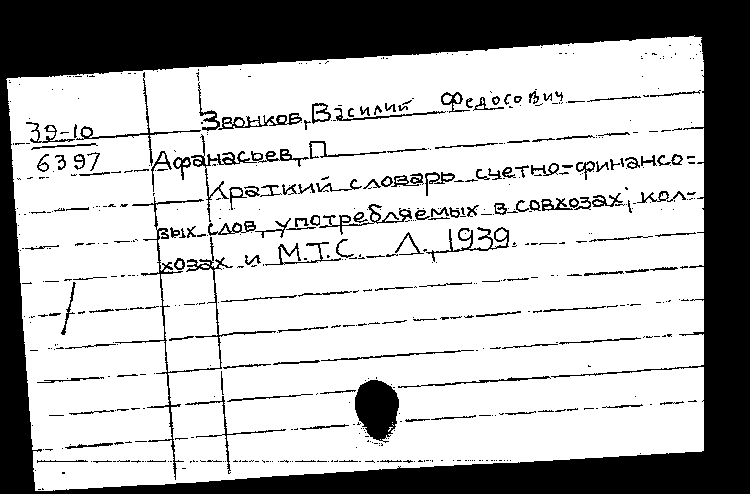 Звонков, Василий Федосович
39-10
6397
Афанасьев, П
Краткий словарь счетно-финансо-
вых слов, употребляемых в совхозах, кол-
хозах и М.Т.С. Л., 1939.